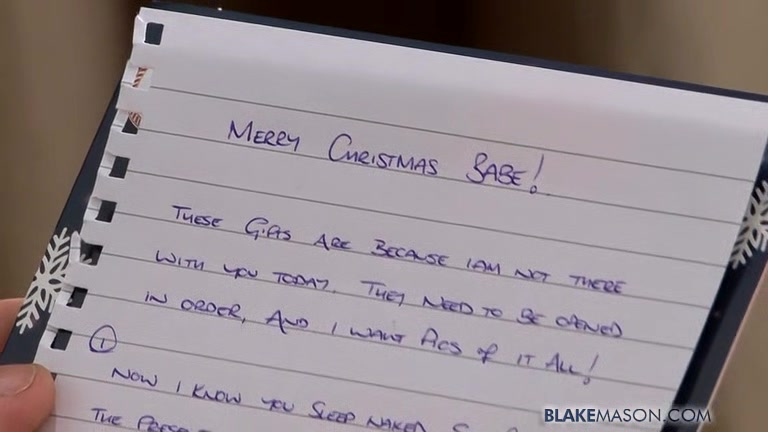 MERRY CHRISTMAS BABE!
THESE GIFTS ARE BECAUSE I AM NOT THERE
WITH YOU TODAY. THEY NEED TO BE OPENED
IN ORDER, AND I WANT PICS OF IT ALL!
1
NOW I KNOW YOU SLEEP NAKED
THE
BLAKEMASON.COM